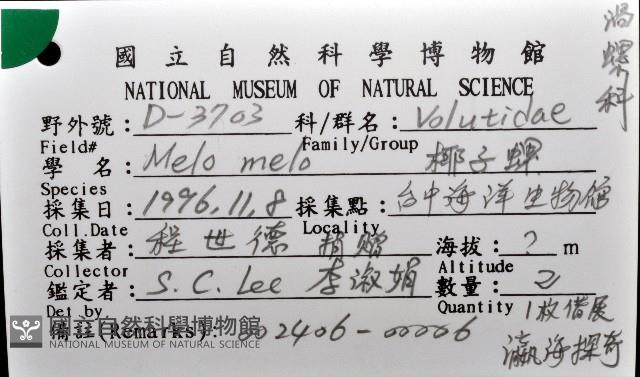 渦螺科
國立自然科學博物館
NATIONAL MUSEUM OF NATURAL SCIENCE
野外號：D-3703 科/群名：Volutidae
Field# Family/Group
學 名：Melo melo 椰子螺
Species
採集日：1996.11.8 採集點：台中海洋生物館
Coll.Date Locality
採集者：程世德 捐贈 海拔：? m
Collector Altitude
鑑定者：S.C. Lee 李淑娟 數量：2
Det by Quantity 1枚借展
備註(Remarks): 002406-00006 瀛海探奇
國立自然科學博物館
NATIONAL MUSEUM OF NATURAL SCIENCE